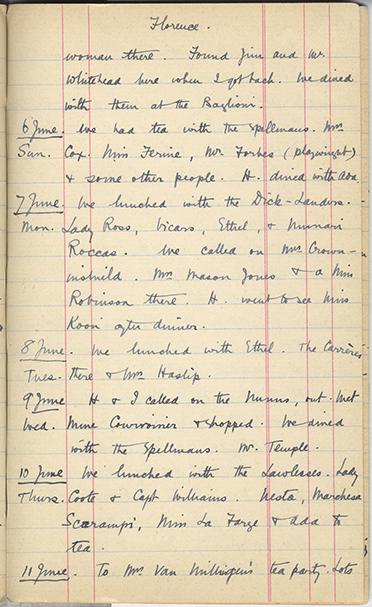 Florence.
woman there. Found Jim and Mr.
Whitehead here when I got back. We dined
with them at the Baglioni.
6 June. We had tea with the Spellmans. Mrs
Sun. Cox. Miss Ferine, Mr. Forbes (playwright)
& some other people. H. dined with Ada.
7 June. We lunched with the Dick-Landers.
Mon. Lady Ross, Vicars, Ethel, &
Roccas. We called on Mrs Crown-
inshield. Mrs Mason Jones & a Miss
Robinson there. H. went to see Miss
Koon after dinner.
8 June. We lunched with Ethel. The Carrères
Tues. there & Mrs Haslip.
9 June H & I called on the Nunns, out. Met
Wed. Mme & shopped. We dined
with the Spellmans. Mr. Temple.
10 June We lunched with the Lawlesses. Lady
Thurs. Coote & Capt Williams. Nesta, Marchesa
Scarampi, Miss La Farge & Ada to
tea.
11 June. To Mrs Van Millingen's tea party. Lots